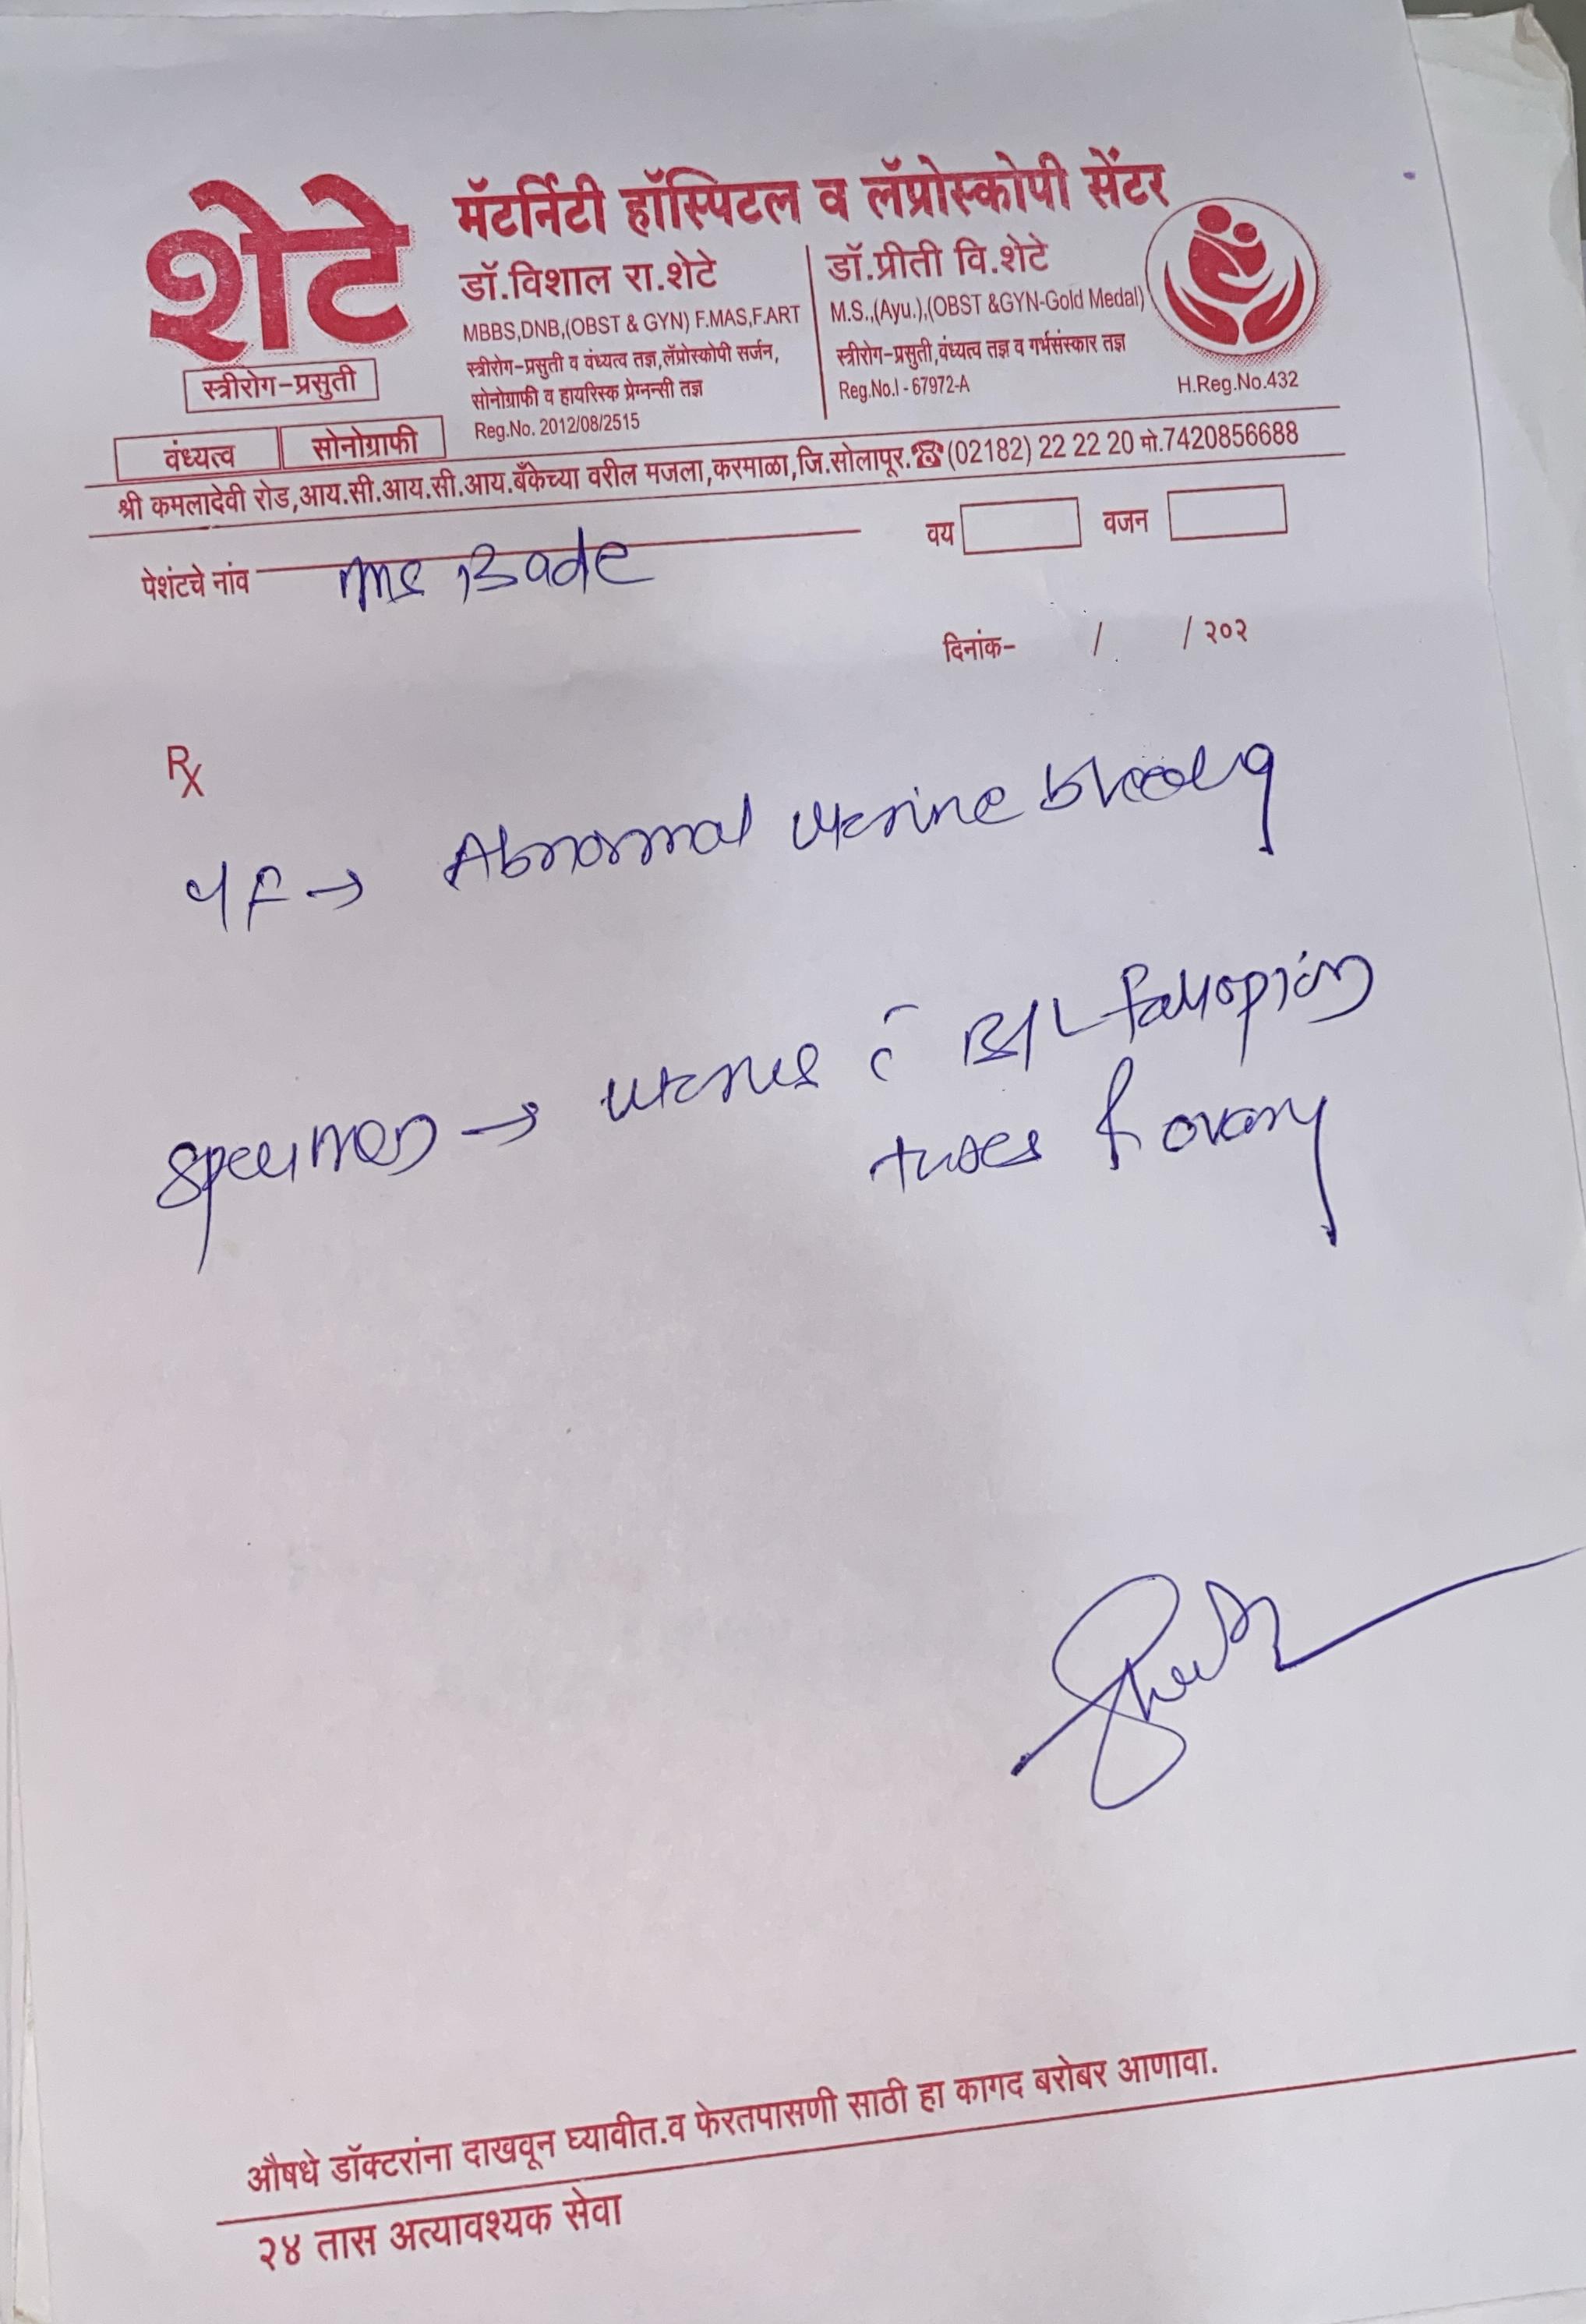 शेटे
मॅटर्निटी हॉस्पिटल व लॅप्रोस्कोपी सेंटर
स्त्रीरोग-प्रसुती
वंध्यत्व सोनोग्राफी
डॉ.विशाल रा.शेटे
MBBS,DNB,(OBST & GYN) F.MAS,F.ART
स्त्रीरोग-प्रसुती व वंध्यत्व तज्ञ,लॅप्रोस्कोपी सर्जन,
सोनोग्राफी व हायरिस्क प्रेग्नन्सी तज्ञ
Reg.No. 2012/08/2515
डॉ.प्रीती वि.शेटे
M.S.,(Ayu.),(OBST &GYN-Gold Medal)
स्त्रीरोग-प्रसुती,वंध्यत्व तज्ञ व गर्भसंस्कार तज्ञ
Reg.No.I - 67972-A
H.Reg.No.432
श्री कमलादेवी रोड,आय.सी.आय.सी.आय.बँकेच्या वरील मजला,करमाळा,जि.सोलापूर.☎(02182) 22 22 20 मो.7420856688
पेशंटचे नांव Ms Bade
वय वजन
दिनांक- / / २०२
Rx
→ Abnormal uterine bleeding
Specimen → uterus c̄ B/L fallopian
tubes & ovary
औषधे डॉक्टरांना दाखवून घ्यावीत.व फेरतपासणी साठी हा कागद बरोबर आणावा.
२४ तास अत्यावश्यक सेवा